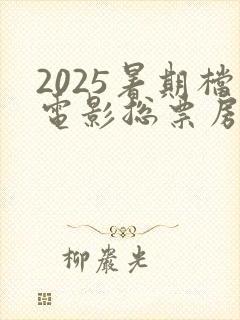 2025暑期檔
電影總票房
柳巖光